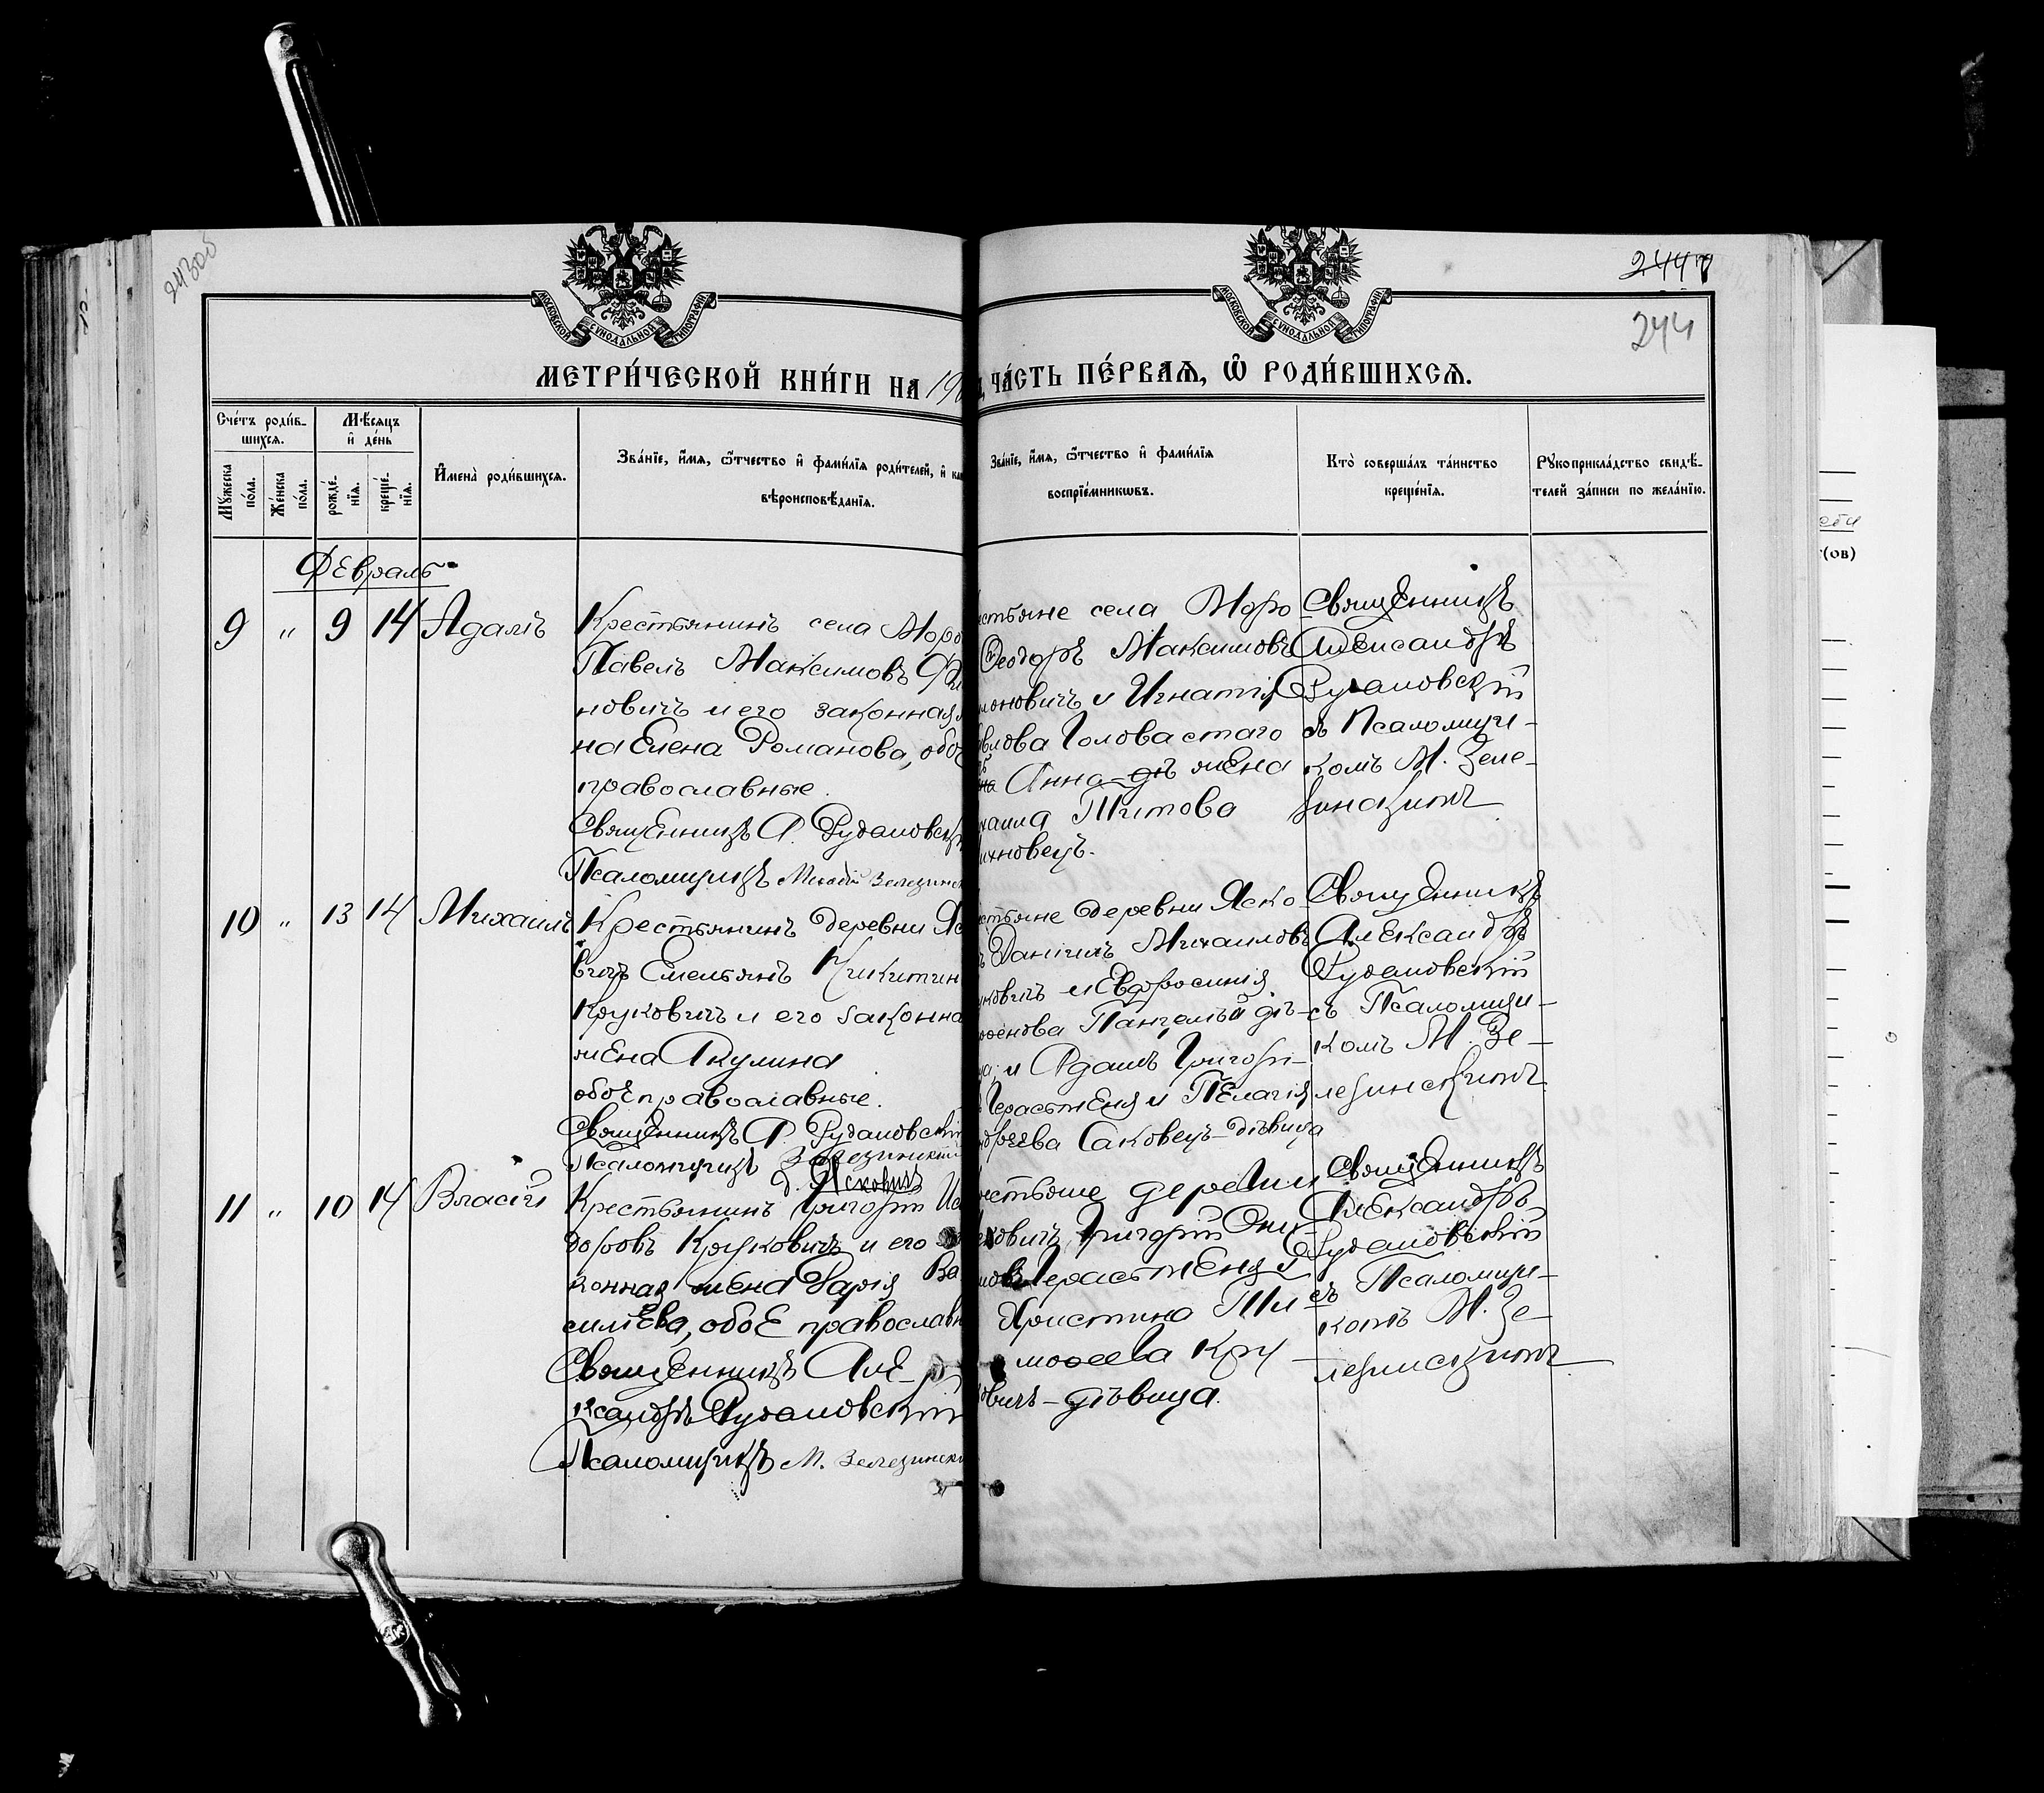 243об
2447
244
МОСКОВСКОЙ СУНОДАЛЬНОЙ ТИПОГРАФІИ
МОСКОВСКОЙ СУНОДАЛЬНОЙ ТИПОГРАФІИ
МЕТРИ́ЧЕСКОЙ КНИ́ГИ НА 19
ЧА́СТЬ ПЕ́РВАѦ, Ѡ РОДИ́ВШИХСѦ.
Сче́тъ роди́в-
шихсѧ.
Мѣсѧцъ
и де́нь
Мꙋжеска
по́ла.
Же́нска
по́ла.
рожде́-
нїѧ.
креще́-
нїѧ.
Имена̀ роди́вшихсѧ.
Зва́нїе, и́мѧ, ѻ́тчество и фами́лїѧ роди́телей, и как
вѣроисповѣ́данїѧ.
Зва́нїе, и́мѧ, ѻ́тчество и фами́лїѧ
воспрїе́мникѡвъ.
Кто̀ соверша́лъ та́инство
креще́нїѧ.
Рꙋкоприкла́дство свидѣ́-
телей за́писи по жела́нїю.
Февраль
9 " 9 14 Адамъ
Крестьянинъ села Моро
Павелъ Максимовъ
новичъ и его законная
на Елена Романова, обое
православные.
Священникъ А. Рудановскій
Псаломщикъ Мефодій Зелезинск
стьяне села Моро
Ѳеодоръ Максимовъ
моновичъ и Игнатія
влова Головастаго
Анна-дѣ жена
хаила Титова
ихновецъ.
Священникъ
Александръ
Рудановскій
съ Псаломщи-
комъ М. Зеле-
зинскимъ
10 " 13 14 Михаилъ
Крестьянинъ деревни Яс
вичъ Емельянъ Никитин
Круковичъ и его законна
жена Акулина
обое православные.
Священникъ А. Рудановскій
Псаломщикъ Зелезинскій
стьяне деревни Яско-
Даніилъ Михаиловъ
ковичъ и Евфросинія
Пангелый дѣ-
а; и Адамъ Григорі-
Герасименя и Пелагія
Саковецъ-дѣвица
Священникъ
Александръ
Рудановскій
съ Псаломщи-
комъ М. Зе-
лезинскимъ
д. Ясковичъ
11 " 10 14 Власій
Крестьянинъ Григорій Ис
доровъ Круковичъ и его за
конная жена Дарія Ва
силіева, обое православн
Священникъ Але-
ксандръ Рудановскій
Псаломщикъ М. Зелезинскі
стьяне деревни
ковичъ, Григорій Они-
мовъ Герасименя и
Христина Ти-
моѳеева Кру
ковичъ-дѣвица.
Священникъ
Александръ
Рудановскій
съ Псаломщи-
комъ М. Зе-
лезинскимъ
(ов)